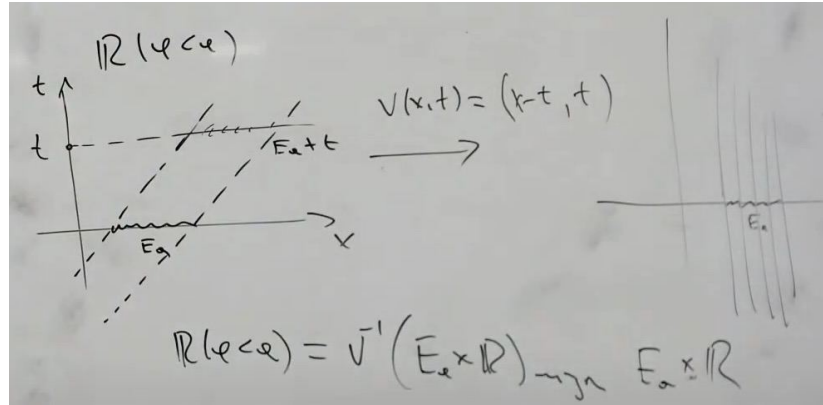 ℝ(φ<a)
t
t
E_a+t
V(x,t) = (x-t, t)
E_a
x
E_a
ℝ(φ<a) = V⁻¹(E_a×ℝ) E_a×ℝ